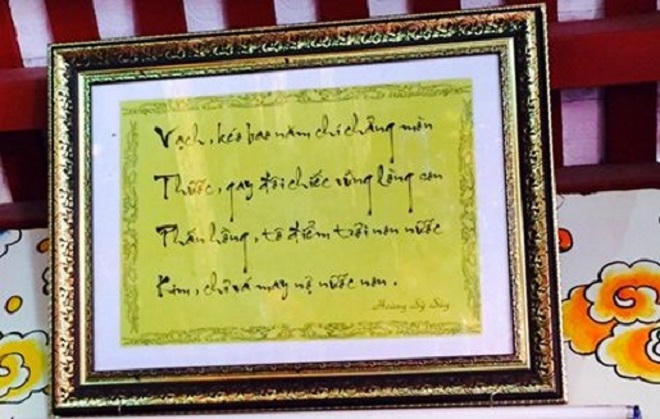 Vạch, kéo bao năm chí chẳng mòn
Thước, gay đôi chiếc vững lòng son
Phấn hồng, tô điểm trời non nước
Kim, chỉ vá may nợ nước non.
Hoàng Sỹ Suý